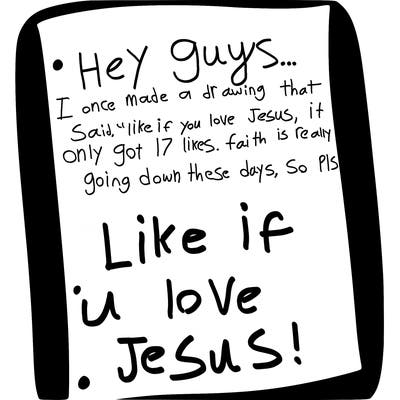 Hey guys...
I once made a drawing that
Said, "like if you love Jesus, it
only got 17 likes. faith is really
going down these days, So Pls
Like if
u love
Jesus!